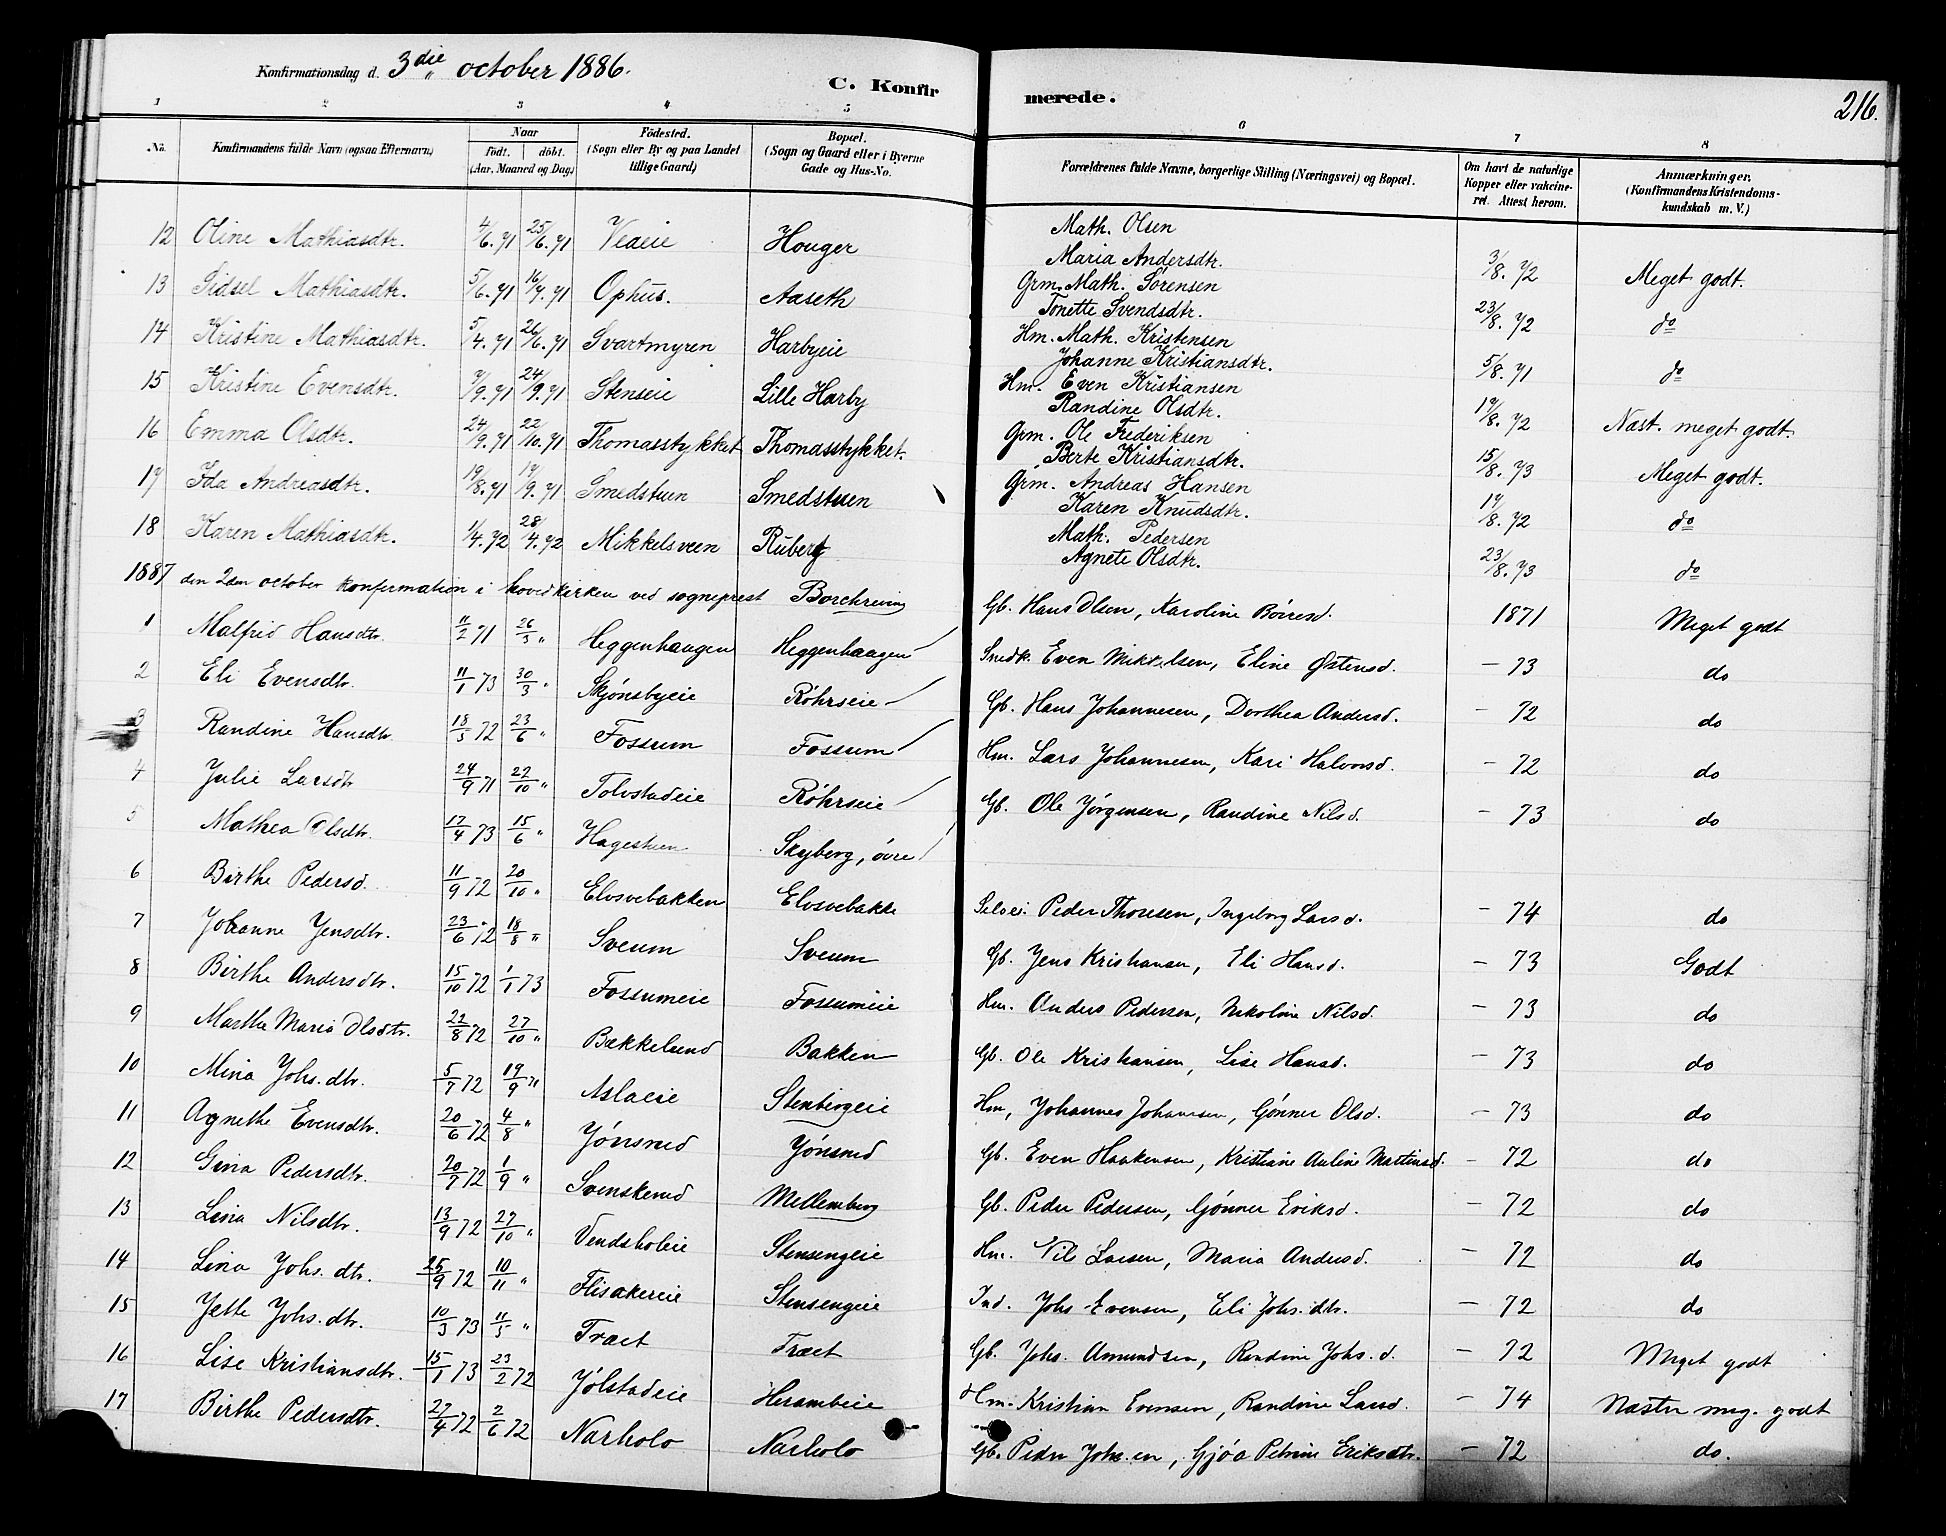 Konfirmationsdag d. 3die october 1886.
C. Konfir merede. 216.
1 2 3 4 5 6 7 8
No. Konfirmandens fulde Navn (ogsaa Efternavn) Naar födt. döbt. (Aar, Maaned og Dag) Födested. (Sogn eller By og paa Landet tillige Gaard) Bopæl. (Sogn og Gaard eller i Byerne Gade og Hus-No. Forældrenes fulde Navne, borgerlige Stilling (Næringsvei) og Bopæl. Om havt de naturlige Kopper eller vakcineret. Attest herom. Anmærkninger. (Konfirmandens Kristendomskundskab m. V.)
12 Oline Mathiasdtr. 4/6. 71 25/6. 71 Vedeie Houger Math. Olsen Maria Andersdtr. 3/8. 72 Meget godt.
13 Sidsel Mathiasdtr. 5/6. 71 16/7. 71 Ophus. Aaseth Grm. Math. Sörensen Tonette Svendsdtr. 23/8. 72 do
14 Kristine Mathiasdtr. 5/4. 71 26/6. 71 Svartmyren Harbyeie Hm. Math. Kristensen Johanne Kristiansdtr. 5/8. 71 do
15 Kristine Evensdtr. 7/9. 71 24/9. 71 Stenseie Lille Harby Hm. Even Kristiansen Randine Olsdtr. 17/8. 72 Næst. meget godt.
16 Emma Olsdtr. 24/9. 71 22/10. 71 Thomasstykket Thomasstykket. Grm. Ole Frederiksen Berte Kristiansdtr. 15/8. 73 Meget godt.
17 Ida Andreasdtr. 19/8. 71 17/9. 71 Smedstuen Smedstuen Grm. Andreas Hansen Karen Knudsdtr. 17/8. 72 do
18 Karen Mathiasdtr. 1/4. 72 28/4. 72 Mikkelsveen Ruberg Math. Pedersen Agnete Olsdtr. 23/8. 73 do
1887 den 2den october konfirmation i hovedkirken ved sogneprest Borchrevink
1 Malfrid Hansdtr. 11/2 71 26/3 " Heggenhaugen Heggenhaugen Gb. Hans Olsen, Karoline Börresd. 1871 Meget godt
2 Eli Evensdtr. 11/1 73 30/3 " Skjönsbyeie Röhrseie Snedk. Even Mikkelsen, Eline Östensd. - 73 do
3 Randine Hansdtr. 18/5 72 23/6 " Fossum Fossum Gb. Hans Johannesen, Dorthea Andersd. - 72 do
4 Julie Larsdtr 24/9 71 22/10 " Tolvstadeie Röhrseie Hm. Lars Johannesen, Kari Halvorsd. - 72 do
5 Mathea Olsdtr. 17/4 73 15/6 " Hagestuen Skyberg, övre Gb. Ole Jörgensen, Randine Nilsd. - 73 do
6 Birthe Pedersd. 11/9 72 20/10 " Elvsvebakken Elvsvebakke Selvei. Peder Thoresen, Ingeborg Larsd. - 74 do
7 Johanne Jensdtr. 23/6 72 18/8 " Sveum Sveum Gb. Jens Kristiansen, Eli Hansd. - 73 Godt
8 Birthe Andersdtr. 15/10 72 1/1 73 Fossumeie Fossumeie Hm. Anders Pedersen, Nikoline Nilsd. - 73 do
9 Marthe Maria Olsdtr. 22/8 72 27/10 " Bækkelund Bakken Gb. Ole Kristiansen, Lise Hansd. - 73 do
10 Mina Johs. dtr. 5/7 72 19/9 " Aslaeie Stenbergeie Hm, Johannes Johannesen, Gönner Olsd. - 73 do
11 Agnethe Evensdtr. 20/6 72 4/8 " Jönsrud Jönsrud Gb. Even Haakensen, Kristiane Auline Martinsd. - 72 do
12 Gina Pedersdtr. 20/7 72 1/9 " Svenskerud Mellemberg Gb. Peder Pedersen, Gönner Eriksd. - 72 do
13 Lina Nilsdtr. 13/9 72 27/10 " Vendsholeie Stensengeie Hm. Nils Larsen, Maria Andersd. - 72 do
14 Lina Johs. dtr. 25/9 72 10/11 " Flisakereie Stensengeie Ind. Johs Evensen, Eli Johs. dtr. - 72 do
15 Jette Johs. dtr. 10/3 73 11/5 " Træet Træet Gb. Johs. Amundsen, Randine Johs. d. - 72 Meget godt
16 Lise Kristiansdtr. 15/1 73 23/2 72 Jölstadeie Herambeie Hm. Kristian Evensen, Randine Larsd. - 74 Næsten meg. godt
17 Birthe Pedersdtr. 27/4 72 2/6 72 Narholo Narholo Gb. Peder Johs.en, Gjöa Petrine Eriksdtr. - 72 do.